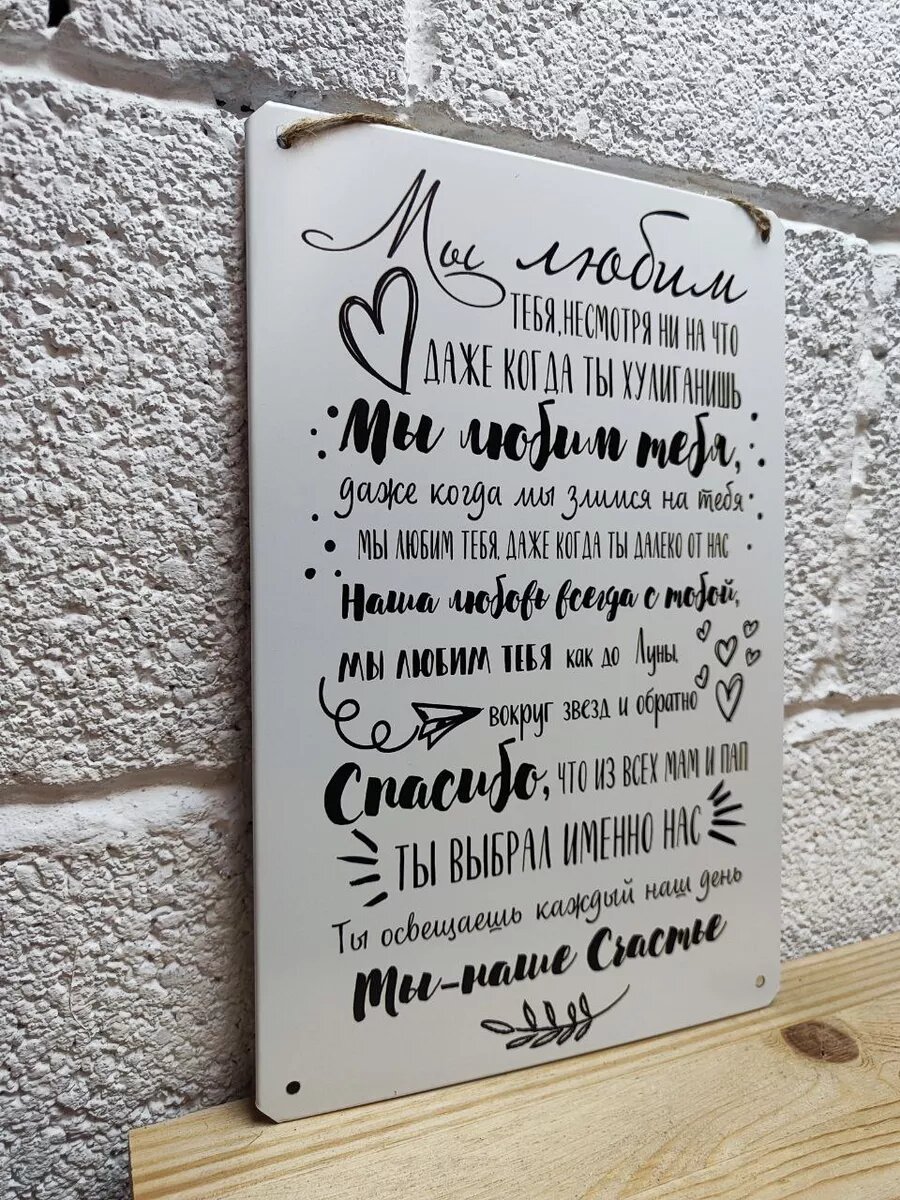 Мы любим
ТЕБЯ, НЕСМОТРЯ НИ НА ЧТО
ДАЖЕ КОГДА ТЫ ХУЛИГАНИШЬ
Мы любим тебя,
даже когда мы злимся на тебя
МЫ ЛЮБИМ ТЕБЯ, ДАЖЕ КОГДА ТЫ ДАЛЕКО ОТ НАС
Наша любовь всегда с тобой,
МЫ ЛЮБИМ ТЕБЯ как до Луны,
вокруг звезд и обратно
Спасибо, ЧТО ИЗ ВСЕХ МАМ И ПАП
ТЫ ВЫБРАЛ ИМЕННО НАС
Ты освещаешь каждый наш день
Ты-наше Счастье